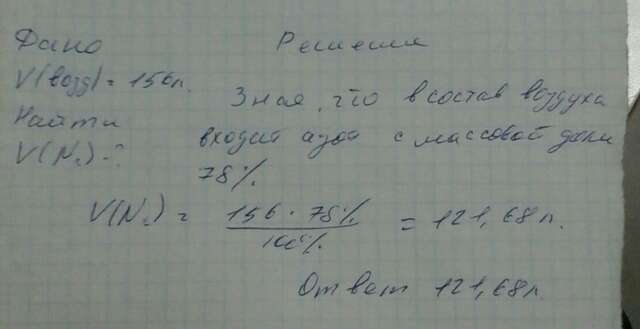 Дано
Решение
V(возд) = 156л.
Зная, что в состав воздуха
Найти
входит азот с массовой доли
V(N₂) - ?
78%
V(N₂) = 156 · 78% / 100% = 121,68 л.
Ответ 121,68л.